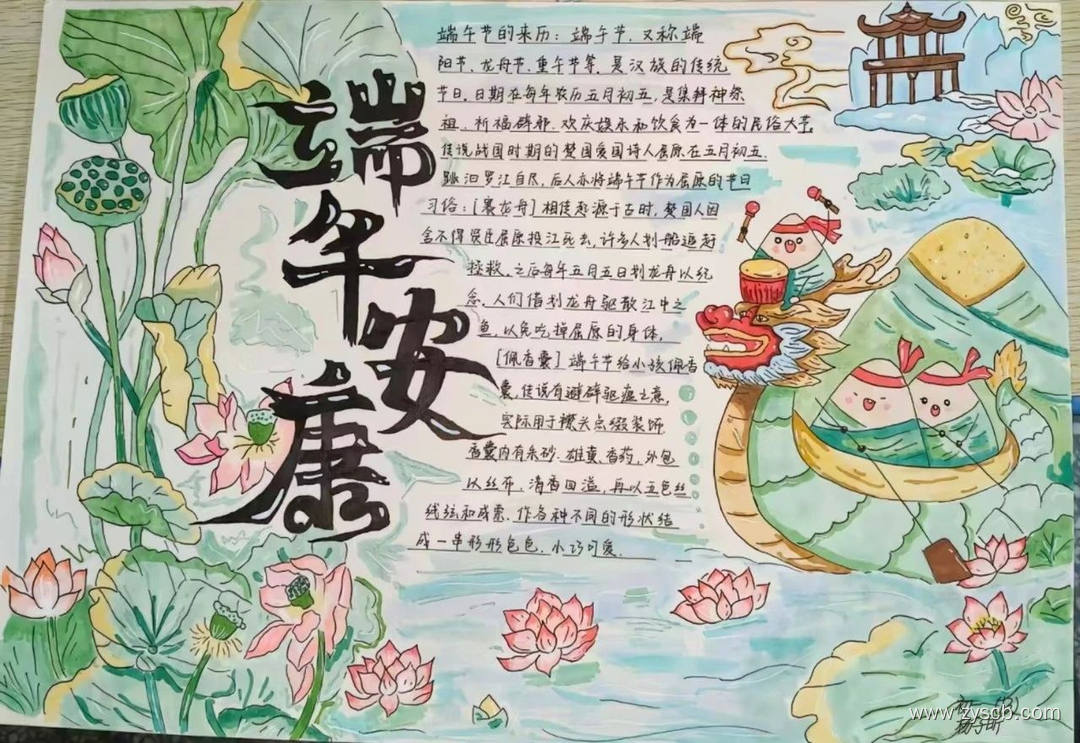 端午安康
端午节的来历：端午节，又称端
阳节、龙舟节、重午节等，是汉族的传统
节日，日期在每年农历五月初五，是集拜神祭
祖、祈福辟邪、欢庆娱乐和饮食为一体的民俗大节，
传说战国时期的楚国爱国诗人屈原在五月初五
跳汨罗江自尽，后人亦将端午节作为屈原的节日
习俗：[赛龙舟]相传起源于古时，楚国人因
舍不得贤臣屈原投江死去，许多人划船追赶
拯救，之后每年五月五日划龙舟以纪
念，人们借划龙舟驱散江中之
鱼，以免吃掉屈原的身体，
[佩香囊]端午节给小孩佩香
囊，传说有避辟驱瘟之意，
实际用于襟头点缀装饰
香囊内有朱砂、雄黄、香药，外包
以丝布，清香四溢，再以五色丝
线弦扣成索，作各种不同的形状结
成一串形形色色，小巧可爱.
www.zyscb.com